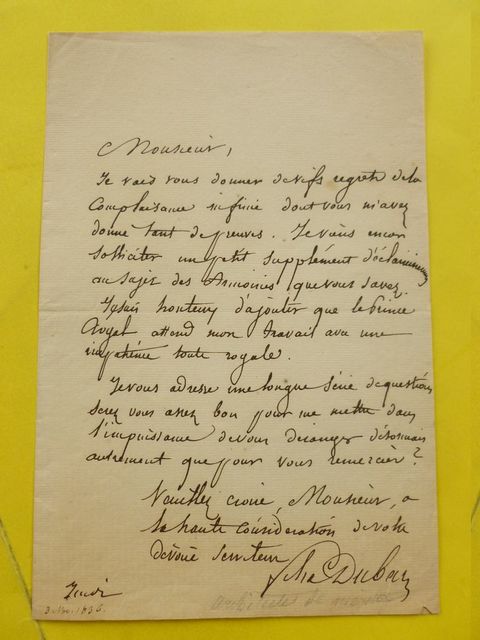 Monsieur,
Je vais vous donner de vifs regrets de la
Complaisance infinie dont vous m'avez
donné tant de preuves. Je viens encor
solliciter un petit supplément d'éclaircissemens
au sujet des Armoiries que vous savez.
Je suis honteux d'ajouter que le Prince
Royal attend mon travail avec une
impatience toute royale.
Je vous adresse une longue série de questions
serez vous assez bon pour me mettre dans
l'impuissance de vous déranger désormais
autrement que pour vous remercier?
Veuillez croire, Monsieur, à
la haute considération de votre
dévoué serviteur
Duban
Jeudi
architecte